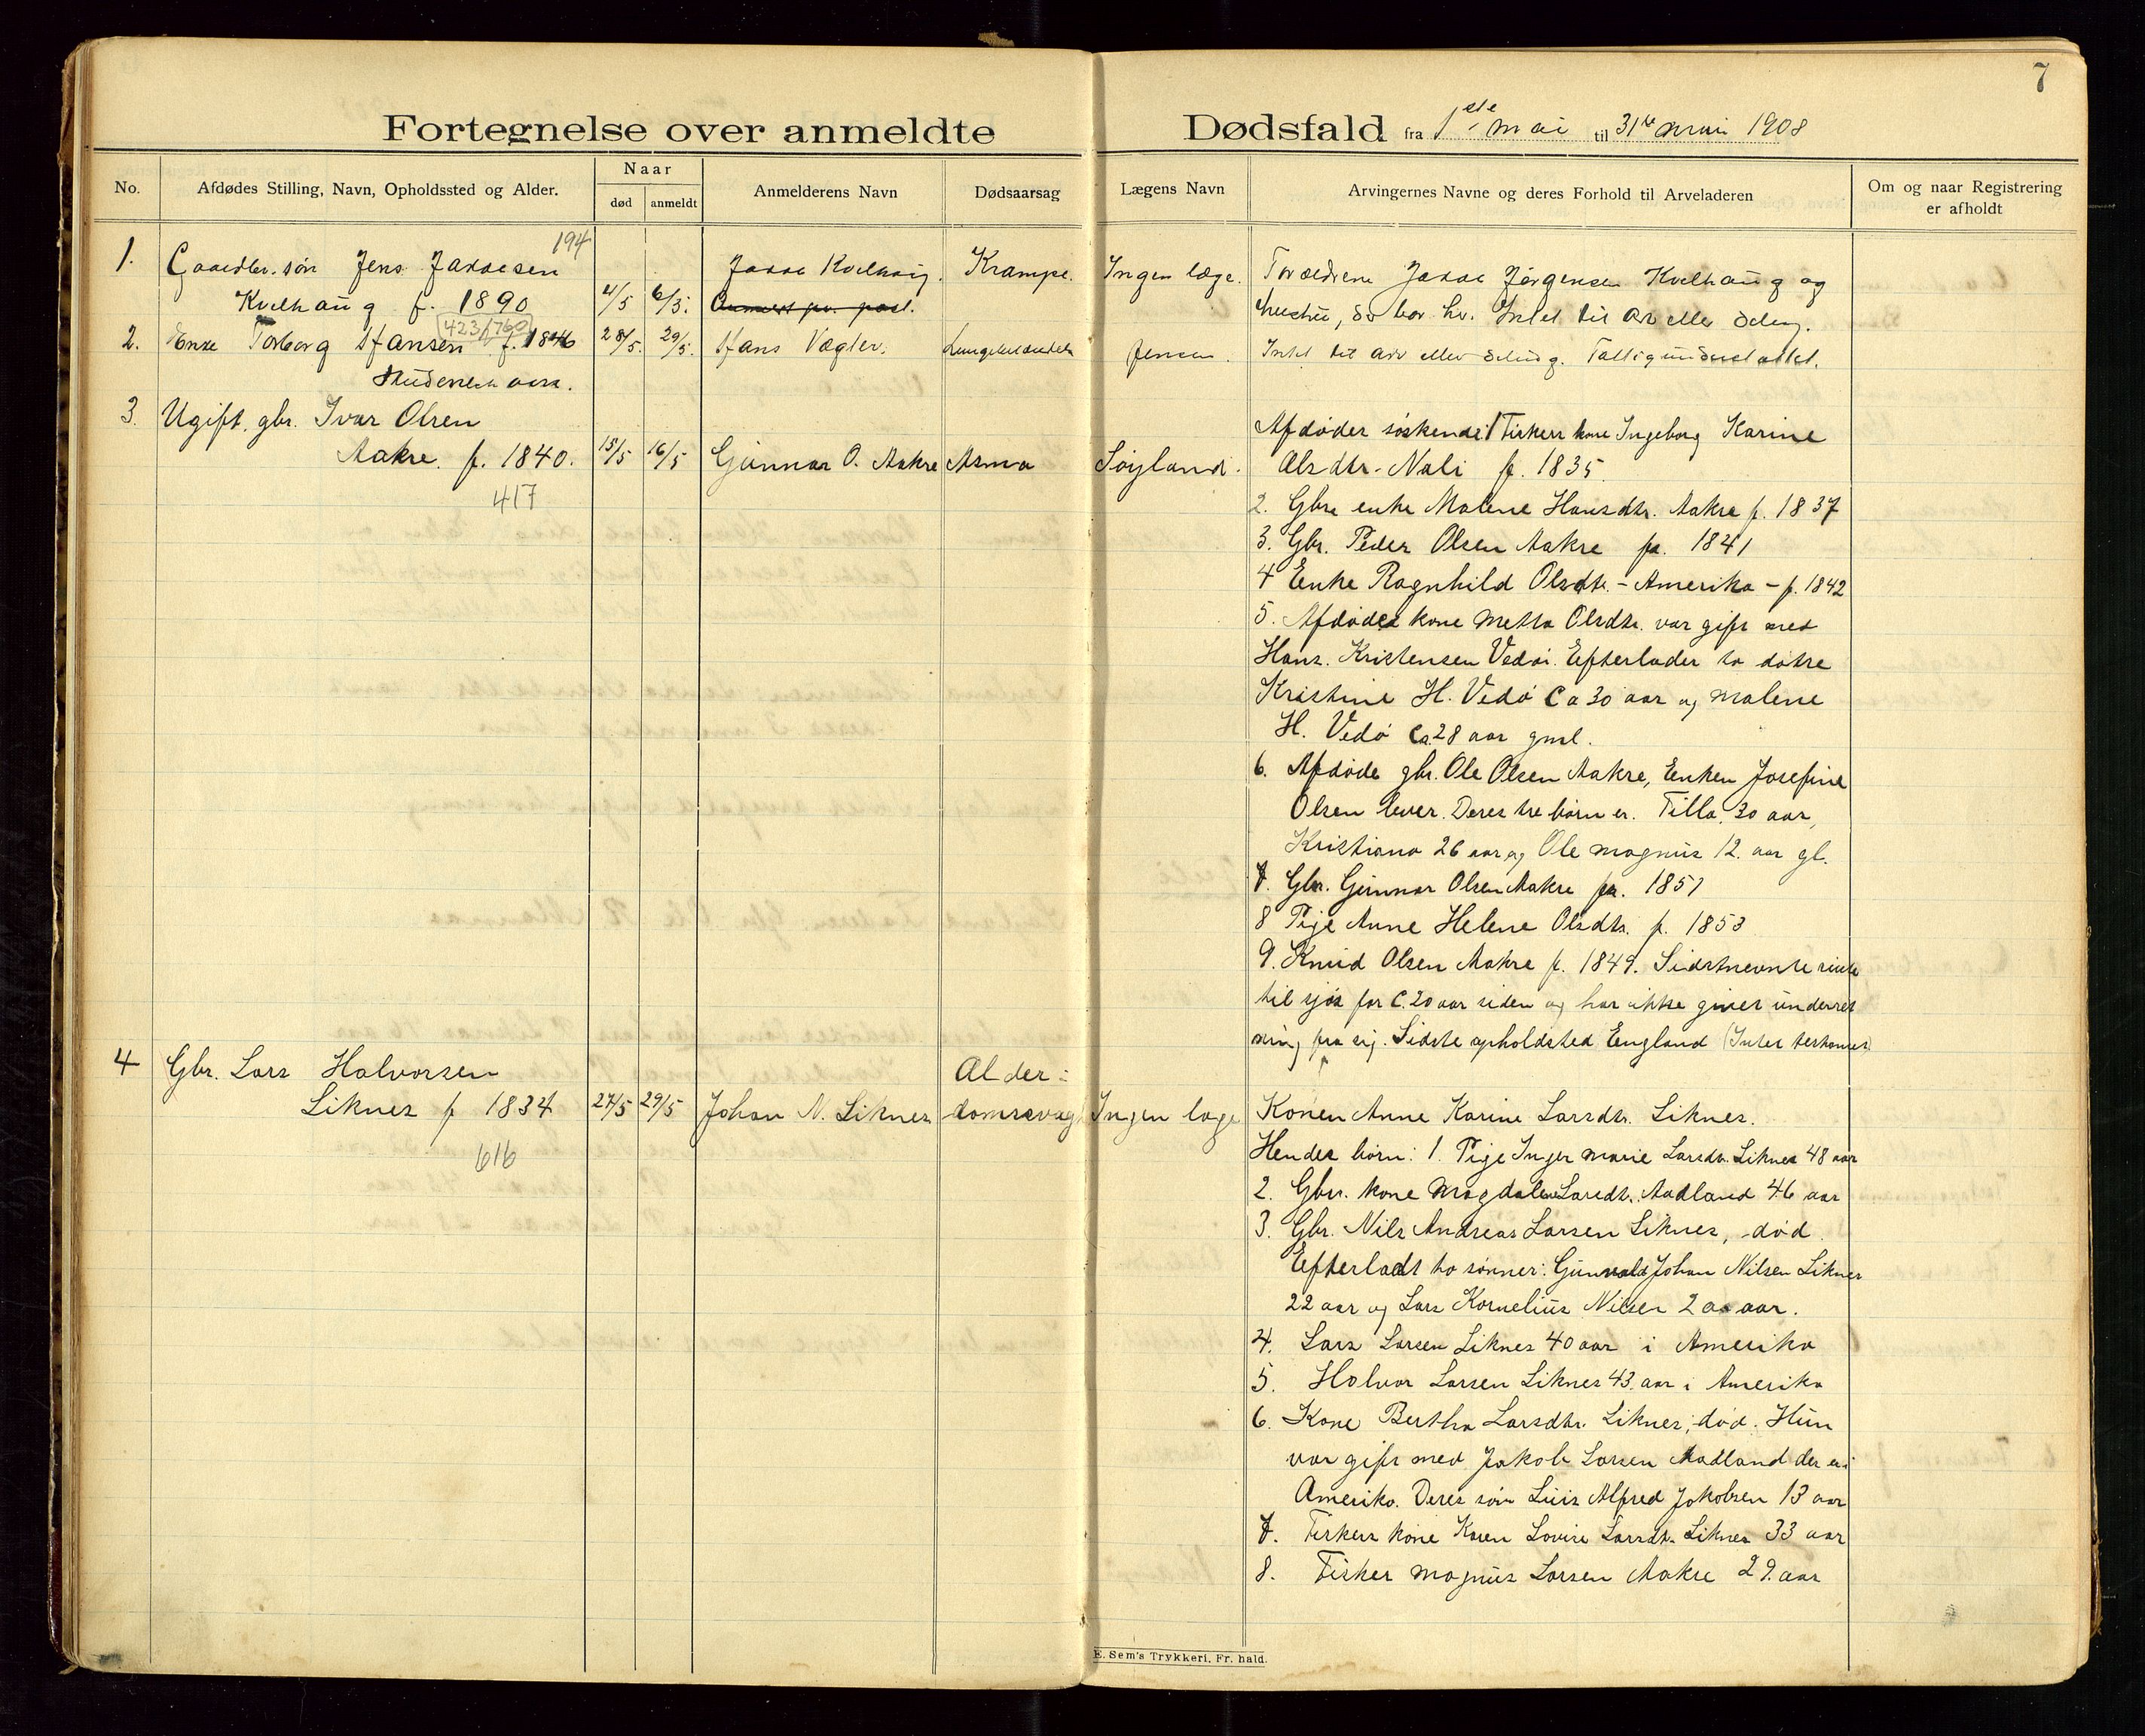 7
Fortegnelse over anmeldte Dødsfald fra 1ste mai til 31te mai 1908
No. Afdødes Stilling, Navn, Opholdssted og Alder. Naar død anmeldt Anmelderens Navn Dødsaarsag Lægens Navn Arvingernes Navne og deres Forhold til Arveladeren Om og naar Registrering er afholdt
194
1. Gaardbr. søn Jens Jakobsen Jakob Kvelhaug. Krampe. Ingen læge. Forældrene Jakob Jørgensen Kvelhaug og
Kvelhaug f. 1890 4/5 6/5. Anmeldt pr. post. hustru, Intet til arv eller deling.
423/760
2. Enke Torborg Hansen f. 1846 28/5. 29/5. Hans Vagler. Lungebetændelse Jensen. Intet til arv eller deling. Fattigunderstøttet.
3. Ugift. gbr. Ivar Olsen Afdødes søskende: 1 Fiskers kone Ingeborg Karine
Aakre. f. 1840. 15/5 16/5 Gunnar O. Aakre Asma Søyland. Olsdtr. Nali f. 1835.
417
2. Gbrs enke Malene Hansdtr. Aakre f. 1837
3. Gbr. Peder Olsen Aakre f. 1841
4 Enke Ragnhild Olsdtr. - Amerika - f. 1842
5. Afdødes kone Metta Olsdtr. var gift med
Hans. Kristensen Vedø. Efterlader to døtre
Kristine H. Vedø Ca 30 aar og Malene
H. Vedø Ca. 28 aar gml.
6. Afdøde gbr. Ole Olsen Aakre, Enken Josefine
Olsen lever. Deres tre børn er. Tilla. 30 aar,
Kristiana 26 aar og Ole Magnus 12. aar gl.
7. Gbr. Gunnar Olsen Aakre f. 1851
8 Pige Anne Helene Olsdtr. f. 1853
9. Knud Olsen Aakre f. 1849. Sidstnevnte reiste
til sjøs for C. 20 aar siden og har ikke givet underret
ning fra sig. Sidste opholdsted England (Intet testament)
4 Gbr. Lars Halvorsen Alder-
Liknes f 1834 27/5 29/5 Johan N. Liknes domssvag Ingen læge Konen Anne Karine Larsdtr. Liknes.
616
Hendes børn: 1. Pige Inger Marie Larsdtr. Liknes 48 aar
2. Gbrs. kone Magdalene Larsdtr. Aadland 46 aar
3. Gbr. Nils Andreas Larsen Liknes, - død.
Efterladt to sønner: Gunvald Johan Nilsen Liknes
22 aar og Lars Kornelius Nilsen 20 aar.
4. Lars Larsen Liknes 40 aar i Amerika
5. Halvor Larsen Liknes 43. aar i Amerika
6. Kone Bertha Larsdtr. Liknes, død. Hun
var gift med Jakob Larsen Aadland der er i
Amerika. Deres søn Luis Alfred Jakobsen 13 aar
7. Fiskers kone Karen Lovise Larsdtr. Liknes 33 aar
8. Fisker Magnus Larsen Aakre 29. aar
E. Sem's Trykkeri, Fr. hald.